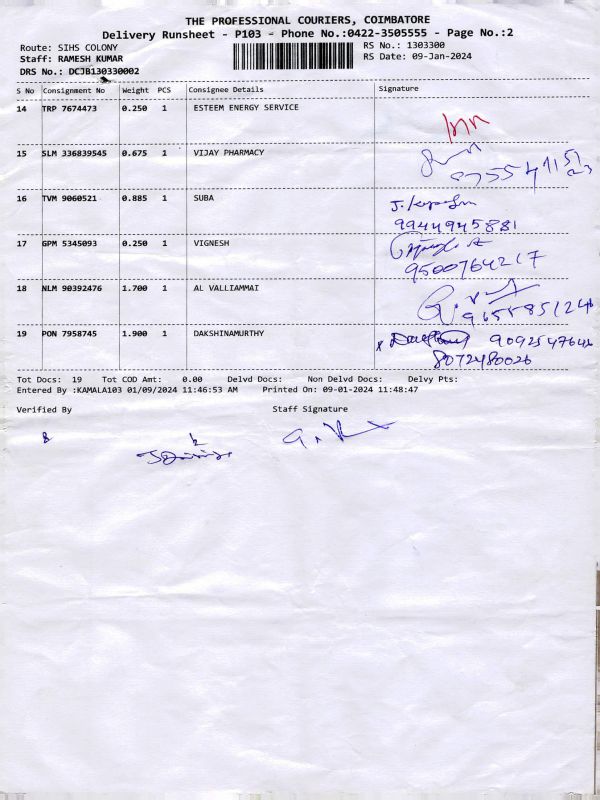 THE PROFESSIONAL COURIERS, COIMBATORE
Delivery Runsheet - P103 - Phone No.:0422-3505555 - Page No.:2
Route: SIHS COLONY RS No.: 1303300
Staff: RAMESH KUMAR RS Date: 09-Jan-2024
DRS No.: DCJB130330002
S No Consignment No Weight PCS Consignee Details Signature
14 TRP 7674473 0.250 1 ESTEEM ENERGY SERVICE
15 SLM 336839545 0.675 1 VIJAY PHARMACY
16 TVM 9060521 0.885 1 SUBA
9944945881
17 GPM 5345093 0.250 1 VIGNESH
9500764217
18 NLM 90392476 1.700 1 AL VALLIAMMAI
19 PON 7958745 1.900 1 DAKSHINAMURTHY
8072480026
Tot Docs: 19 Tot COD Amt: 0.00 Delvd Docs: Non Delvd Docs: Delvy Pts:
Entered By :KAMALA103 01/09/2024 11:46:53 AM Printed On: 09-01-2024 11:48:47
Verified By Staff Signature